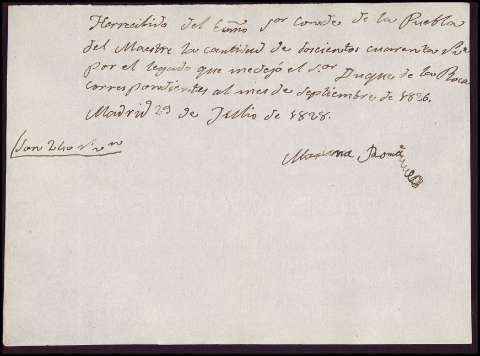 He recibido del Exmo Sor Conde de la Puebla
del Maestre la cantidad de doscientos cuarenta Rs
por el legado que me dejó el Sor Duque de la Roca
correspondientes al mes de Septiembre de 1826.
Madrid 29 de Julio de 1828.
Son 240 rs vn
Mariana Roma